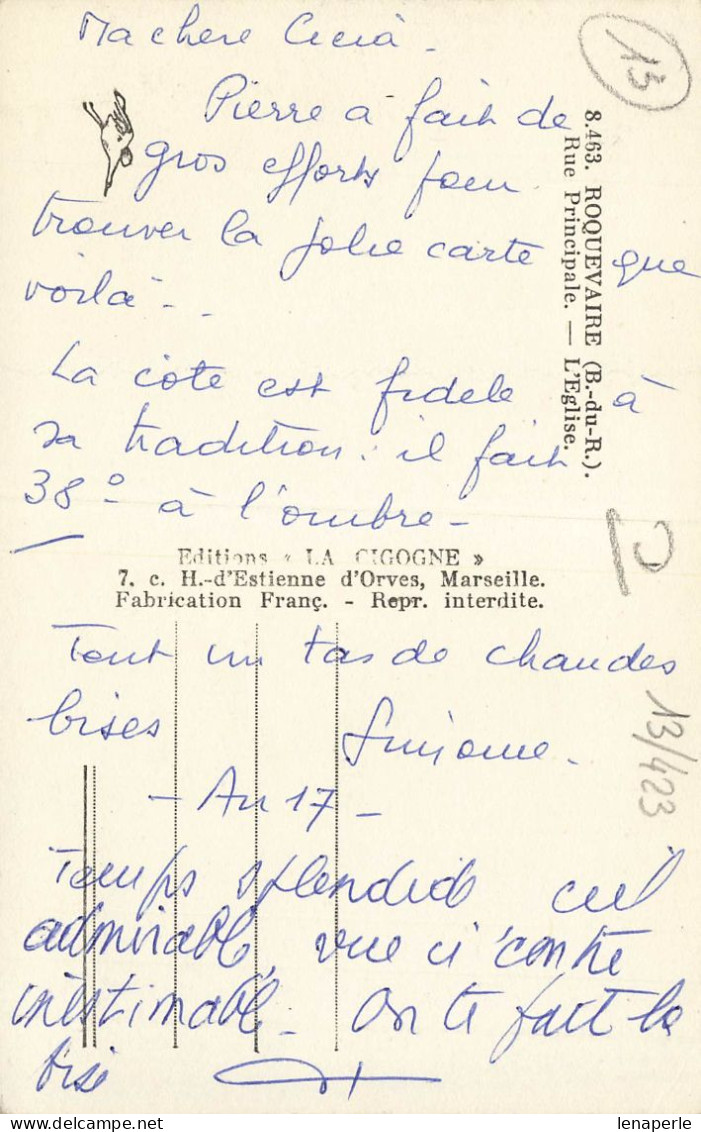 Ma chère
Pierre a fait de
gros efforts pour
trouver la jolie carte que
voilà - .
La côte est fidèle à
sa tradition : il fait
38° à l'ombre -
8.463. ROQUEVAIRE (B.-du-R.).
Rue Principale. — L'Eglise.
Editions « LA CIGOGNE »
7. c. H.-d'Estienne d'Orves, Marseille.
Fabrication Franç. - Repr. interdite.
Tout un tas de chaudes
bises
- Au 17 -
Temps splendide ciel
admirable, vue ci contre
inestimable. On te fait la
bise
13
13/423
lenaperle